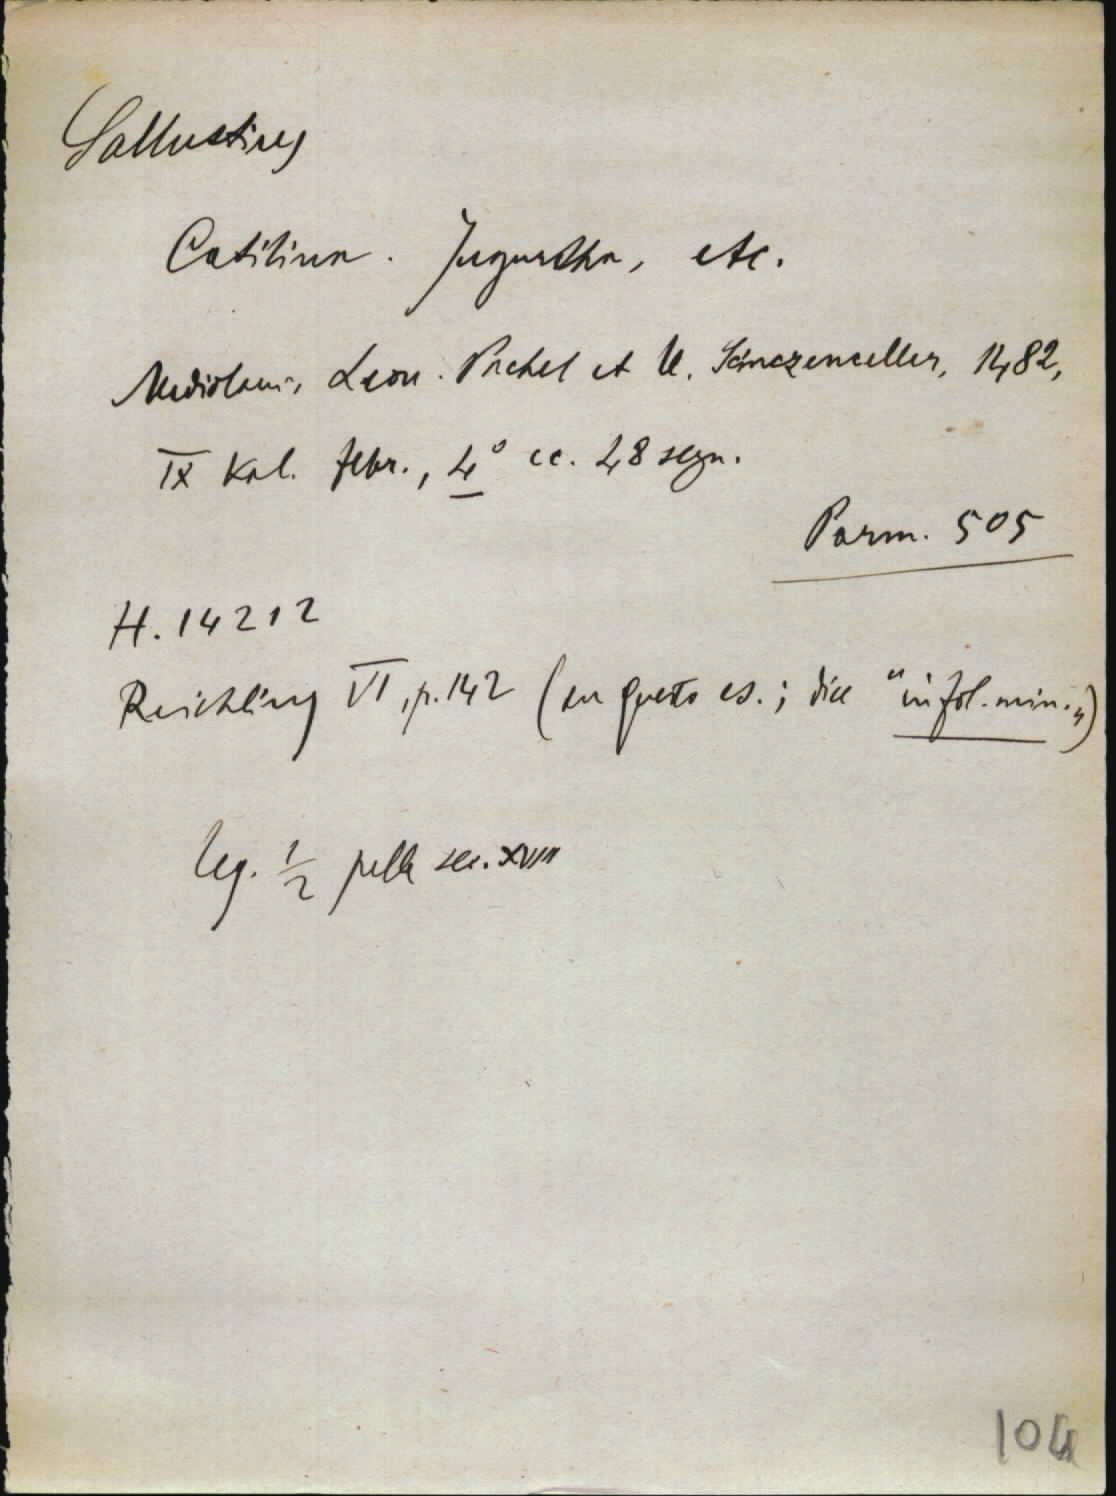 Sallustius
Catilina. Jugurtha, etc.
Mediolani, Leon. Pachel et U. Scinczenceller, 1482,
IX Kal. febr., 4° cc. 48 segn.
Parm. 505
H. 14212
Reichling VI, p. 142 (su questo es.; dice "in fol. min.")
Leg. 1/2 pelle sec. XVIII
104